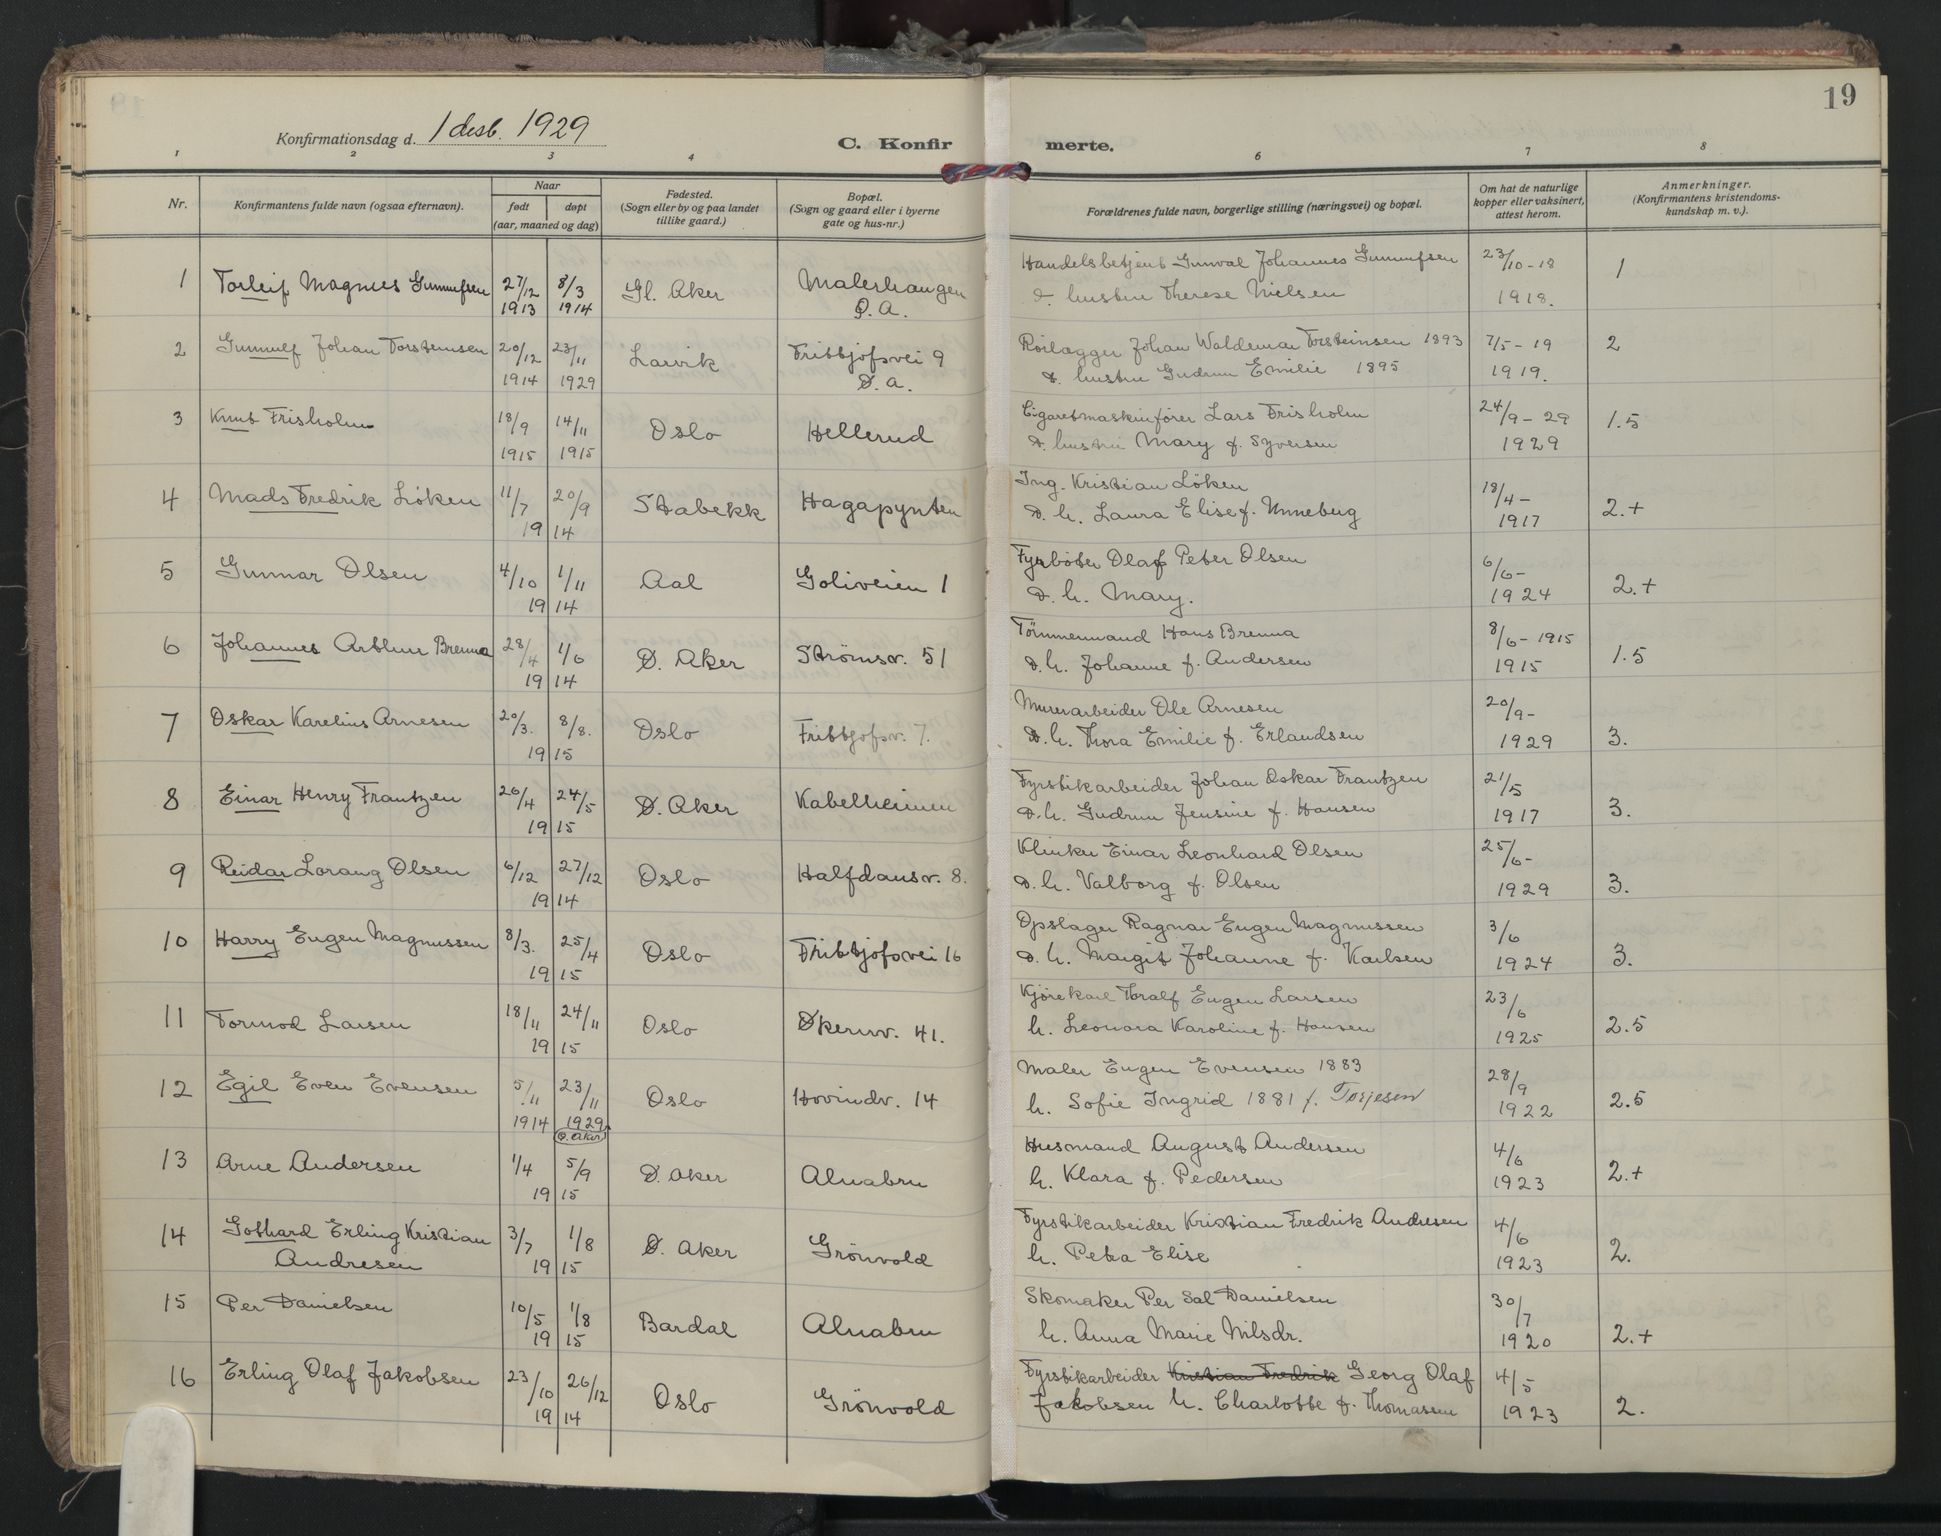 19
Konfirmationsdag d. 1 desb. 1929
C. Konfirmerte.
1 2 3 4 6 7 8
Nr. Konfirmantens fulde navn (ogsaa efternavn). Naar født døpt (aar, maaned og dag) Fødested. (Sogn eller by og paa landet tillike gaard.) Bopæl. (Sogn og gaard eller i byerne gate og hus-nr.) Forældrenes fulde navn, borgerlige stilling (næringsvei) og bopæl. Om hat de naturlige kopper eller vaksinert, attest herom. Anmerkninger. (Konfirmantens kristendomskundskap m. v.).
1 Torleif Magnus Gunnufsen 27/12 1913 8/3 1914 Gl. Aker Malerhaugen Ø.A. Handelsbetjent Gunval Johannes Gunnufsen 23/10-18 1
o. hustru Therese Nielsen 1918.
2 Gunnulf Johan Torsteinsen 20/12 1914 23/11 1929 Larvik Fritbjofsvei 9 Ø.A. Rörlægger Johan Waldemar Torsteinsen 1893 7/5-19 2
o. hustru Gudrun Emilie 1895 1919.
3 Knut Frisholm 18/9 1915 14/11 1915 Oslo Hellerud Cigaretmaskinfører Lars Frisholm 24/9-29 1.5
o. hustru Mary f. Syversen 1929
4 Mads Fredrik Löken 11/7 20/9 1914 Stabekk Hagapynten Ing. Kristian Löken 18/4- 2.+
o. h. Laura Elise f. Unneberg 1917
5 Gunnar Olsen 4/10 1/11 1914 Aal Goliveien 1 Fyrböter Olaf Peter Olsen 6/6- 2.+
o. h. Mary. 1924
6 Johannes Arthur Brenna 28/4 1/6 1914 Ø. Aker Strömsv. 51 Tömmermand Hans Brenna 8/6-1915 1.5
o. h. Johanne f. Andersen 1915
7 Oskar Karelius Arnesen 20/3. 8/8. 1915 Oslo Fritbjofsv. 7. Murerarbeider Ole Arnesen 20/9- 3.
o. h. Thora Emilie f. Erlandsen 1929
8 Einar Henry Frantzen 26/4 24/5 1915 Ø. Aker Kabelheimen Fyrstikarbeider Johan Oskar Frantzen 21/5 3.
o. h. Gudrun Jensine f. Hansen 1917
9 Reidar Lorang Olsen 6/12 27/12 1914 Oslo Halfdansv. 8. Klinker Einar Leonhard Olsen 25/6- 3.
o. h. Valborg f. Olsen 1929
10 Harry Eugen Magnussen 8/3. 25/4 1915 Oslo Fritbjofsvei 16 Opslager Ragnar Eugen Magnussen 3/6 3.
o. h. Margit Johanne f. Karlsen 1924
11 Tormod Larsen 18/11 24/11 1915 Oslo Økernv. 41. Kjörekarl Thoralf Eugen Larsen 23/6 2.5
h. Leonora Karoline f. Hansen 1925
12 Egil Even Evensen 5/11 1914 23/11 1929 Ø. Aker Oslo Hovindv. 14 Maler Eugen Evensen 1883 28/9 2.5
h. Sofie Ingrid 1881 f. Torjesen 1922
13 Arne Andersen 1/4 5/9 1915 Ø. Aker Alnabru Husmand August Andersen 4/6 2.+
h. Klara f. Pedersen 1923
14 Gothard Erling Kristian Andresen 3/7 1/8 1915 Ø. Aker Grönvold Fyrstikarbeider Kristian Fredrik Andresen 4/6 2.
h. Petra Elise 1923
15 Per Danielsen 10/5 1/8 1915 Bardal Alnabru Skomaker Per Sal Danielsen 30/7 2.+
h. Anna Marie Nilsdr. 1920
16 Erling Olaf Jakobsen 23/10 26/12 1914 Oslo Grönvold Fyrstikarbeider Kristian Fredrik Georg Olaf 4/5 2.
Jakobsen h. Charlotte f. Thomassen 1923